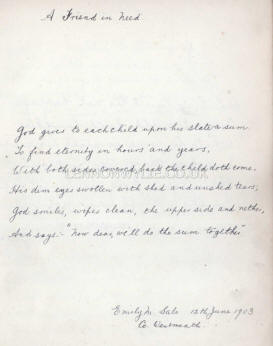 A Friend in Need
God gives to each child upon his slate a sum
To find eternity in hours and years,
With both sides covered, back the child doth come,
His dim eyes swollen with shed and unshed tears;
God smiles, wipes clean, the upper side and nether,
And says:- "Now dear, we'll do the sum together"
LENNONWYLIE.CO.UK
Emily M. Sale 12th June 1903
Co. Westmeath.